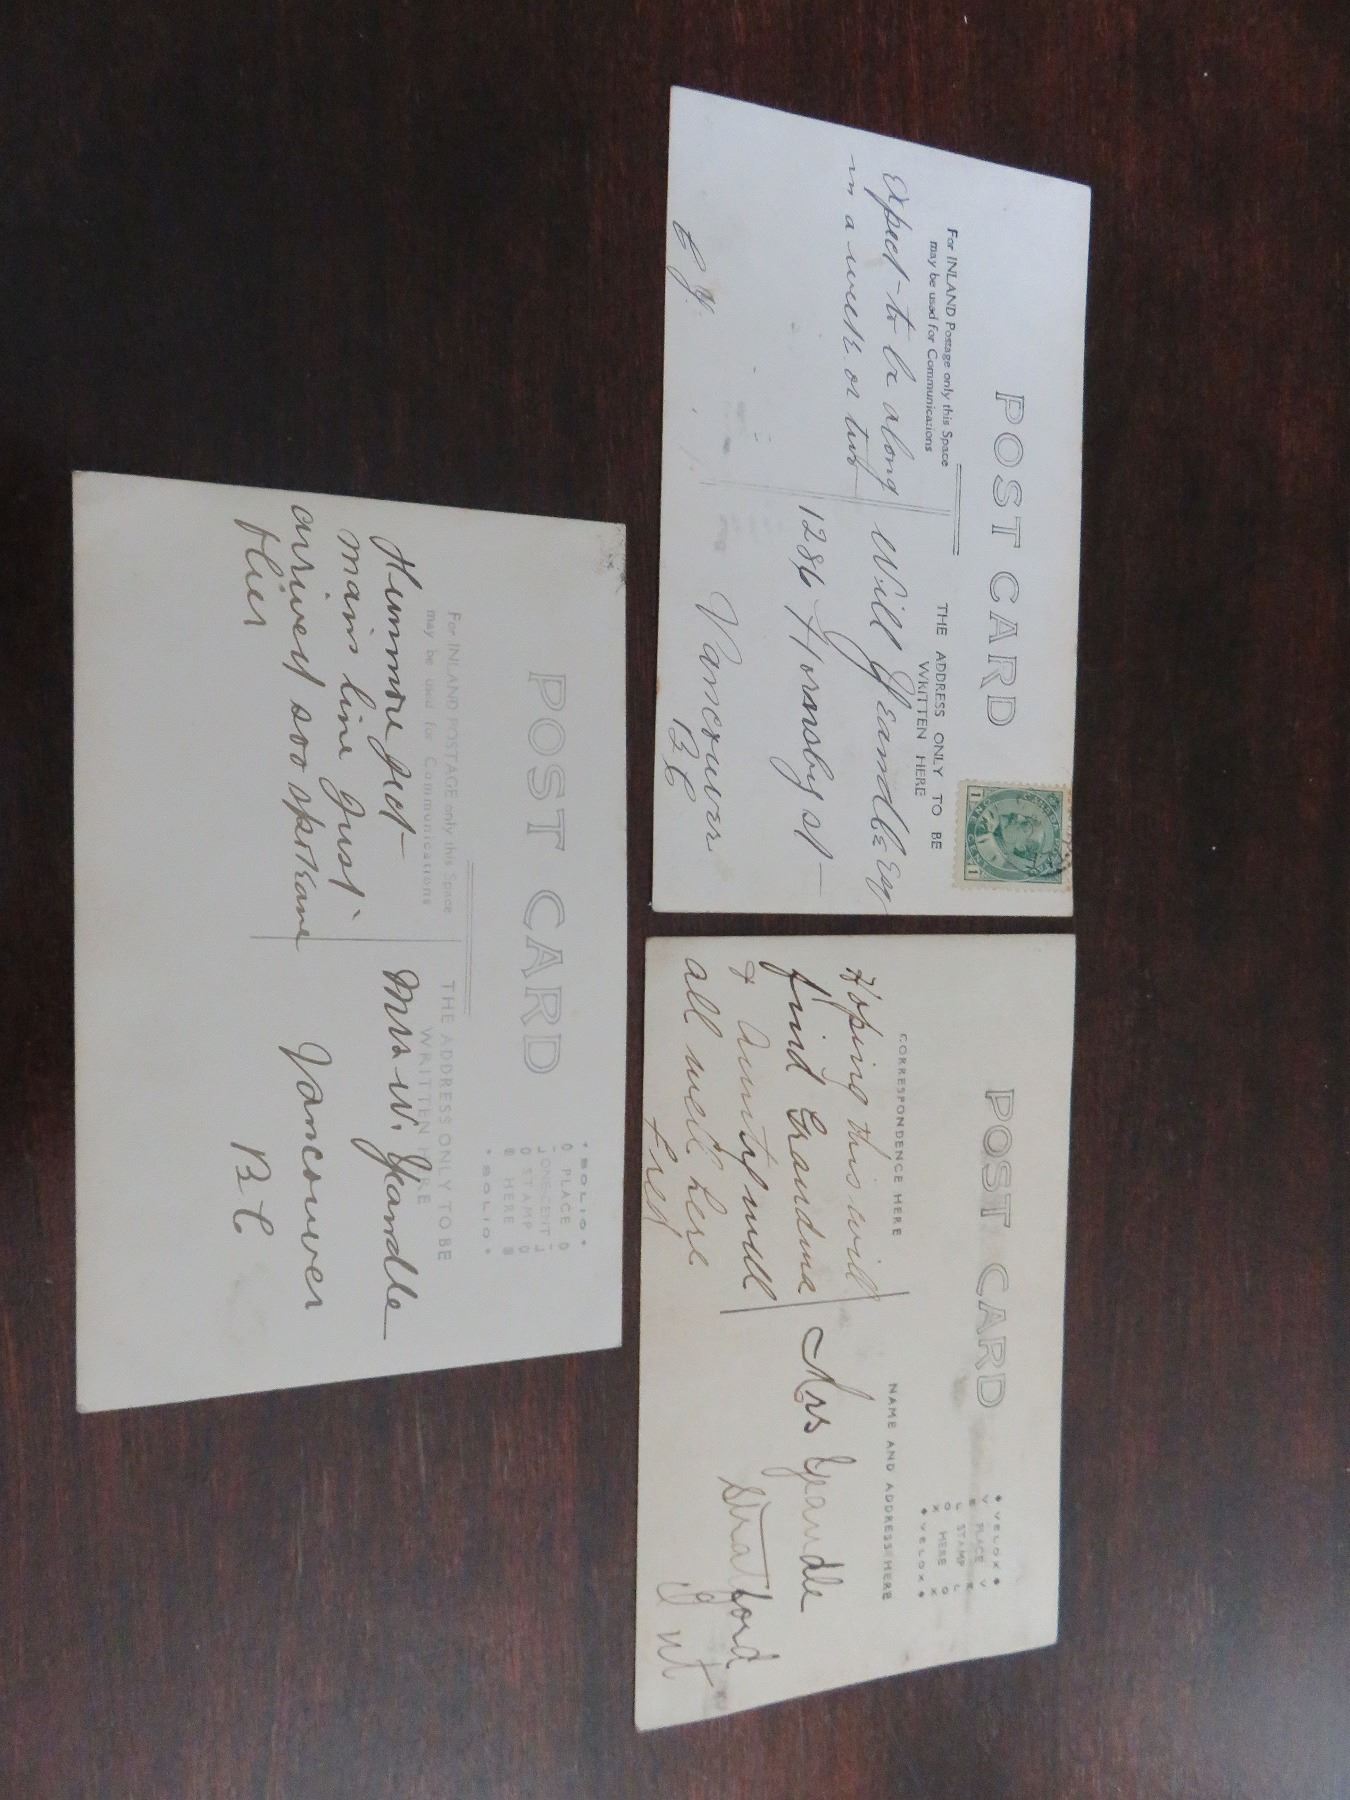 POST CARD
For INLAND Postage only this Space
may be used for Communications
THE ADDRESS ONLY TO BE
WRITTEN HERE
Expect to be along
in a week or two
Will Yeandle Esq
1286 Hornsby st
Vancouver
B C
POST CARD
CORRESPONDENCE HERE
NAME AND ADDRESS HERE
VELOX
PLACE
STAMP
HERE
VELOX
Hoping this will
find Grandma
& Aunty well
all well here
Fred
Mrs Yeandle
Stratford
Ont
POST CARD
For INLAND POSTAGE only this Space
may be used for Communications
THE ADDRESS ONLY TO BE
WRITTEN HERE
SOLIO
PLACE
ONE CENT
STAMP
HERE
SOLIO
main line just
arrived soo spokane
flier
Mrs W. Yeandle
Vancouver
B C